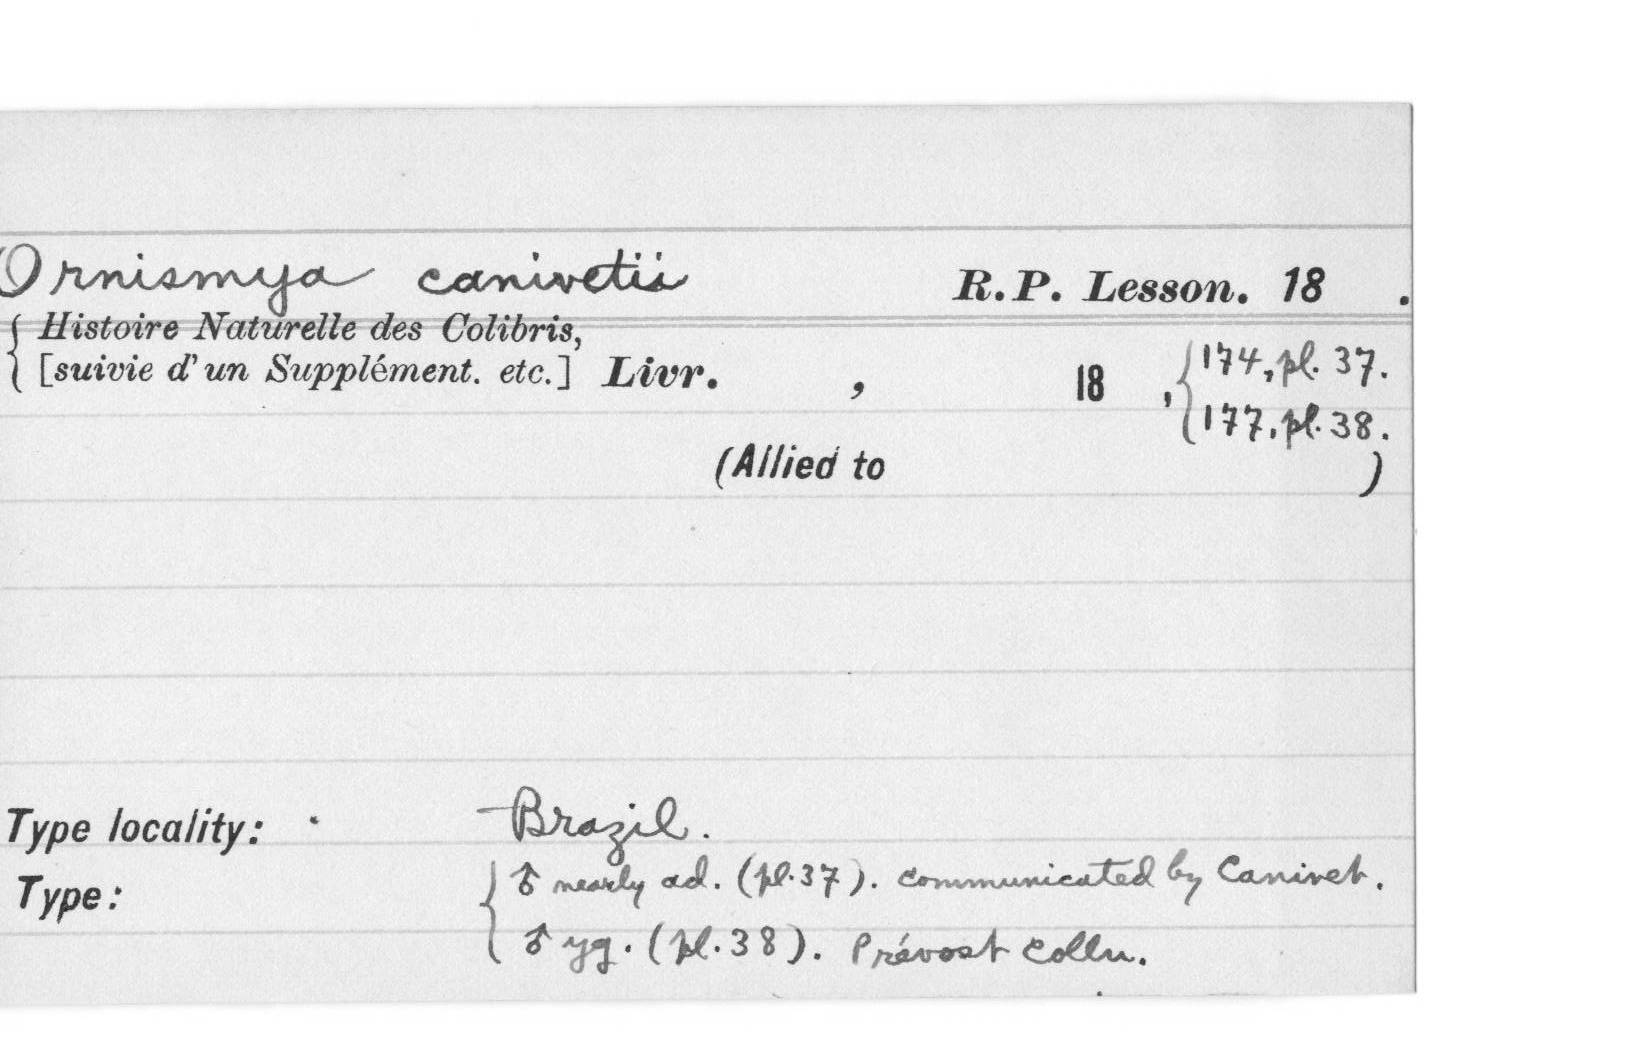 Ornismya canivetii R.P. Lesson. 18 .
{ Histoire Naturelle des Colibris,
[suivie d'un Supplément. etc.] Livr. , 18 , { 174, pl. 37.
177, pl. 38.
(Allied to )
Type locality: Brazil.
Type: { ♂ nearly ad. (pl. 37). communicated by Canivet.
♂ yg. (pl. 38). Prévost Colln.